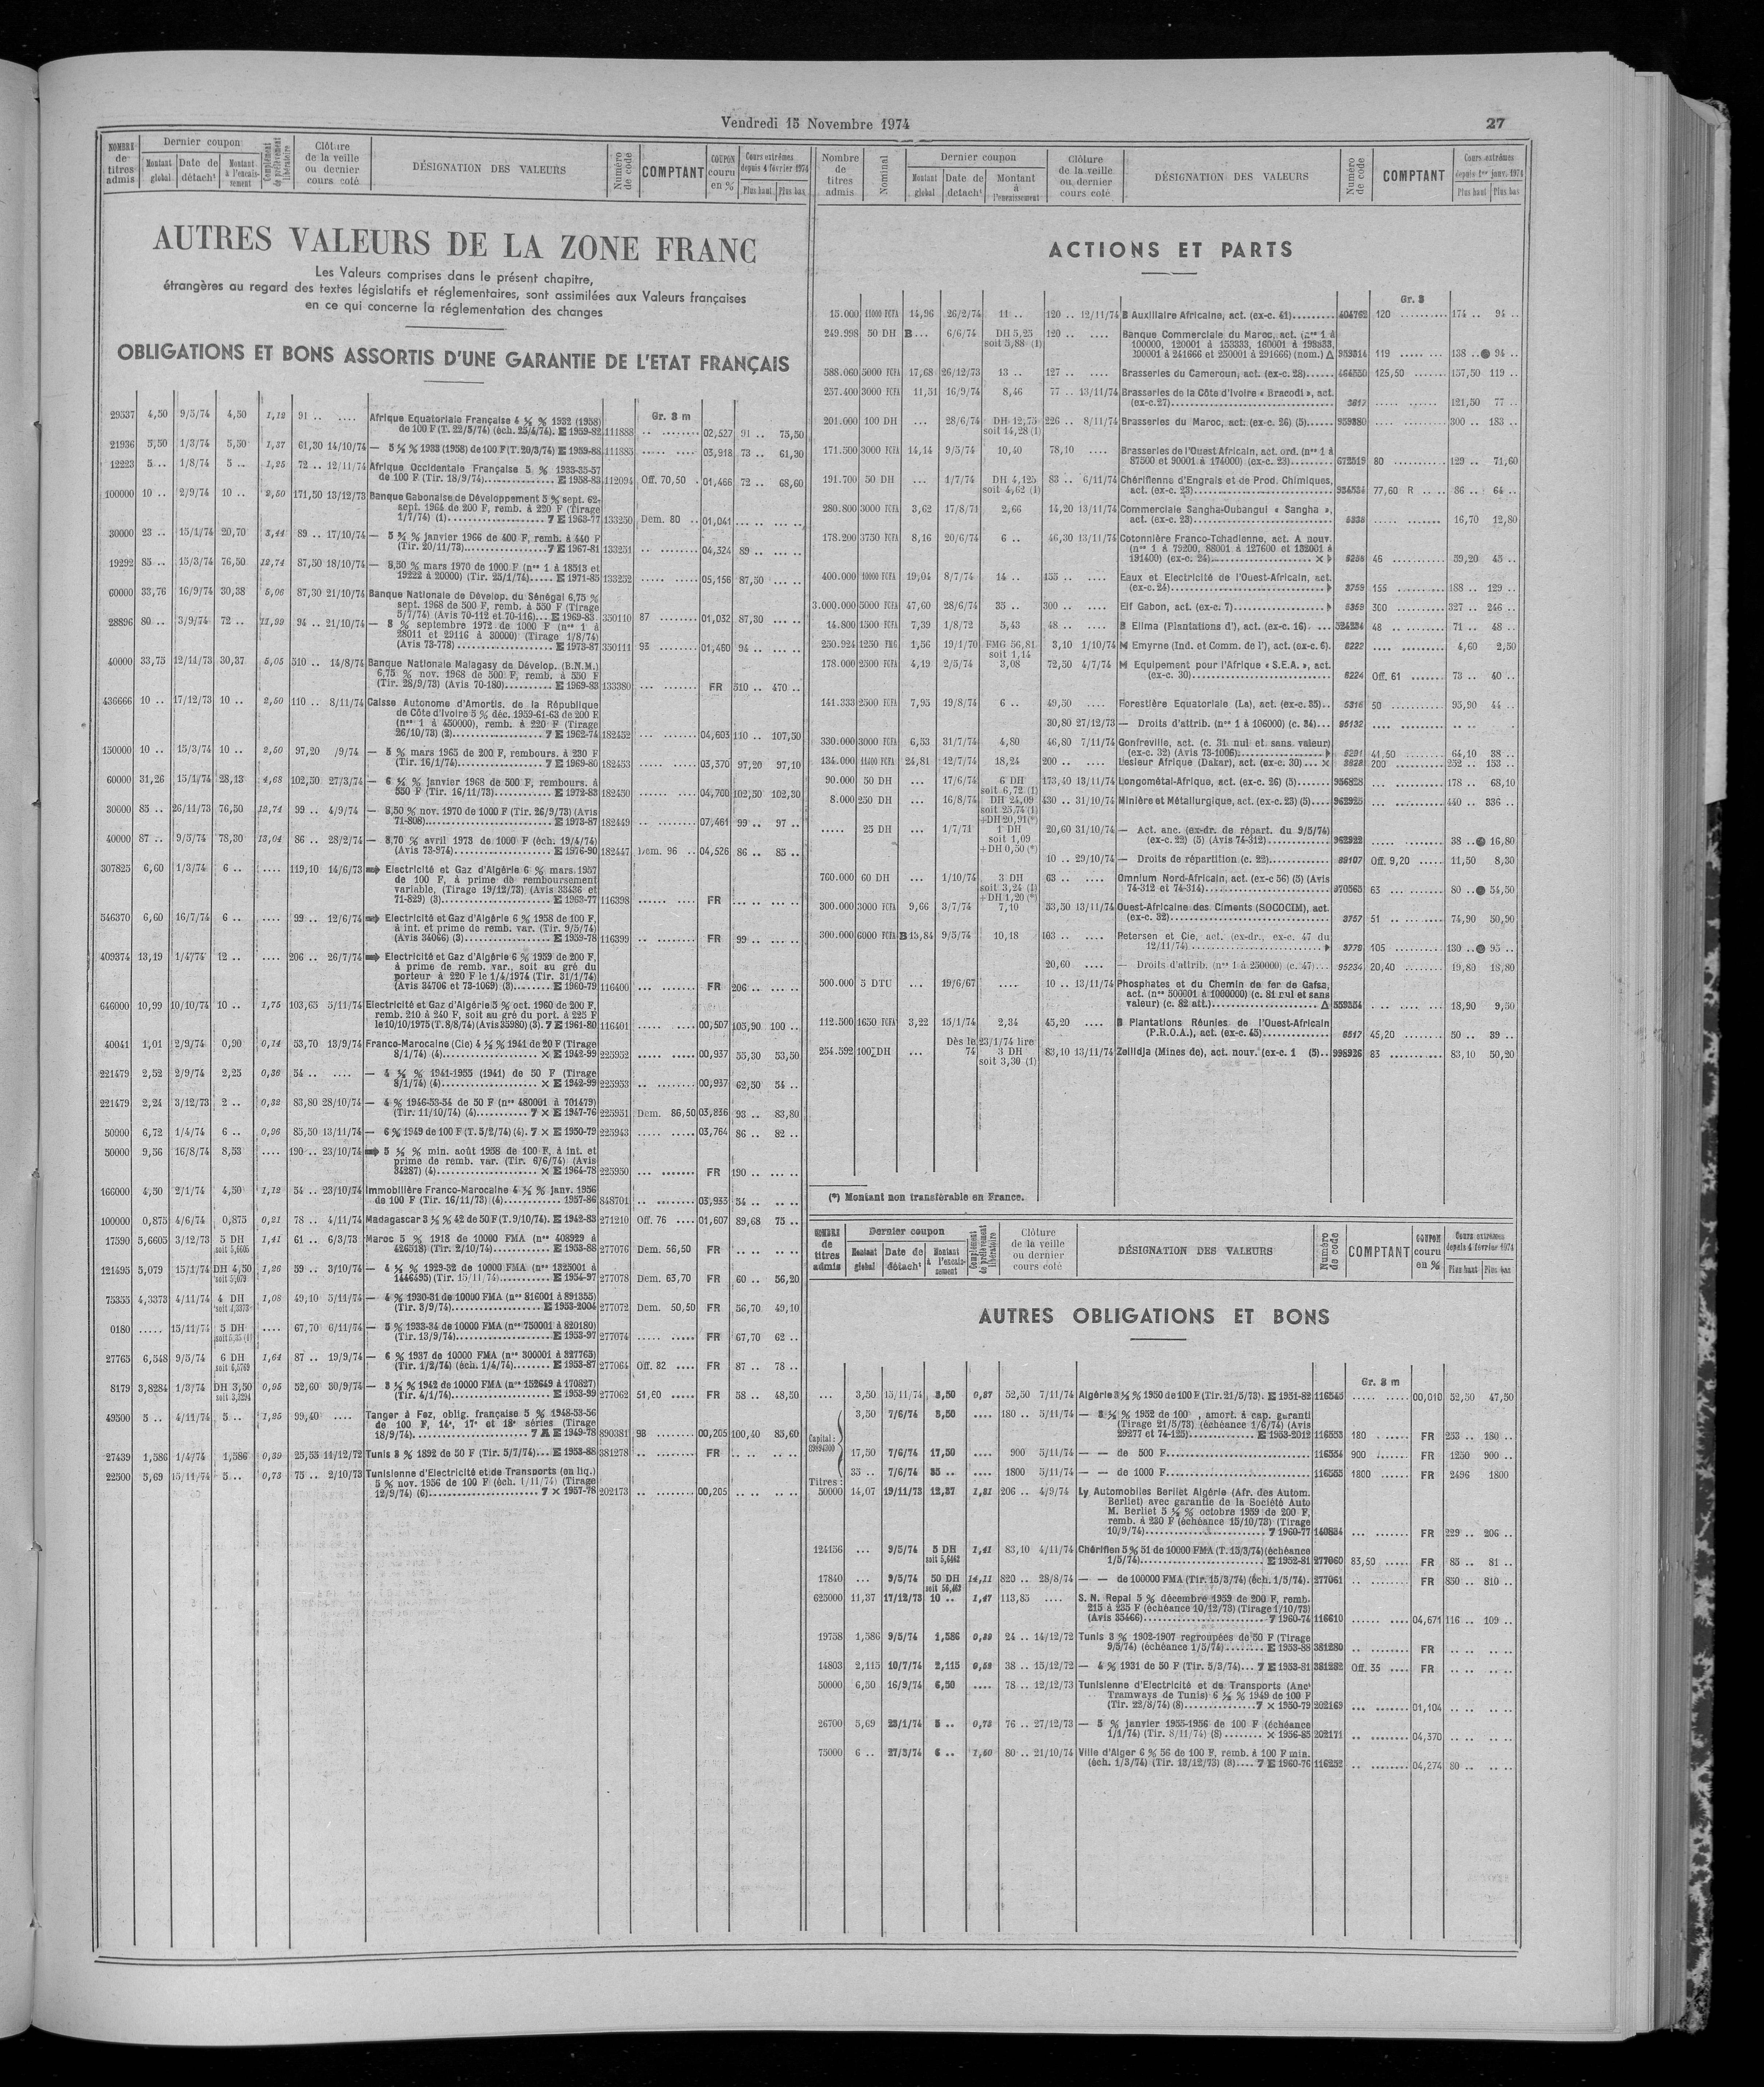 Vendredi 15 Novembre 1974
27
NOMBRE de titres admis | Dernier coupon | Montant global | Date de détacht | Montant à l'encaissement | Complément de prélèvement libératoire | Clôture de la veille ou dernier cours coté | DÉSIGNATION DES VALEURS | Numéro de code | COMPTANT | COUPON couru en % | Cours extrêmes depuis 4 février 1974 | Plus haut | Plus bas
AUTRES VALEURS DE LA ZONE FRANC
Les Valeurs comprises dans le présent chapitre,
étrangères au regard des textes législatifs et réglementaires, sont assimilées aux Valeurs françaises
en ce qui concerne la réglementation des changes
OBLIGATIONS ET BONS ASSORTIS D'UNE GARANTIE DE L'ETAT FRANÇAIS
Gr. 3 m
29337 4,50 9/5/74 4,50 1,12 91 .. .... Afrique Equatoriale Française 4 ½ % 1932 (1958)
de 100 F (T. 22/3/74) (éch. 25/4/74). E 1959-82 111888 .. ........ 02,527 91 .. 75,50
21936 5,50 1/3/74 5,50 1,37 61,30 14/10/74 — 5 ½ % 1933 (1958) de 100 F (T. 20/3/74) E 1959-88 111885 ..... ..... 03,918 73 .. 61,30
12223 5 .. 1/8/74 5 .. 1,25 72 .. 12/11/74 Afrique Occidentale Française 5 % 1933-35-57
de 100 F (Tir. 18/9/74) E 1958-83 112094 Off. 70,50 . 01,466 72 .. 68,60
100000 10 .. 2/9/74 10 .. 2,50 171,50 13/12/73 Banque Gabonaise de Développement 5 % sept. 62-
sept. 1964 de 200 F, remb. à 220 F (Tirage
1/7/74) (1) 7 E 1963-77 133250 Dem. 80 .. 01,041 ... .. ... ..
30000 23 .. 15/1/74 20,70 3,44 89 .. 17/10/74 — 5 ¾ % janvier 1966 de 400 F, remb. à 440 F
(Tir. 20/11/73) 7 E 1967-81 133251 .. ........ 04,324 89 .. ... ..
19292 85 .. 15/3/74 76,50 12,74 87,50 18/10/74 — 8,50 % mars 1970 de 1000 F (nos 1 à 18513 et
19222 à 20000) (Tir. 25/1/74) E 1971-85 133252 ..... ..... 05,156 87,50 ... ..
60000 33,76 16/9/74 30,38 5,06 87,30 21/10/74 Banque Nationale de Dévelop. du Sénégal 6,75 %
sept. 1968 de 500 F, remb. à 550 F (Tirage
5/7/74) (Avis 70-112 et 70-116) E 1969-83 350110 87 ........ 01,032 87,30 ... ..
28896 80 .. 3/9/74 72 .. 11,99 94 .. 21/10/74 — 8 % septembre 1972 de 1000 F (nos 1 à
28011 et 29116 à 30000) (Tirage 1/8/74)
(Avis 73-778) E 1973-87 350111 93 ........ 01,460 94 .. ... ..
40000 33,75 12/11/73 30,37 5,05 510 .. 14/8/74 Banque Nationale Malagasy de Dévelop. (B.N.M.)
6,75 % nov. 1968 de 500 F, remb. à 550 F
(Tir. 28/9/73) (Avis 70-180) E 1969-83 133380 ... ....... FR 510 .. 470 ..
436666 10 .. 17/12/73 10 .. 2,50 110 .. 8/11/74 Caisse Autonome d'Amortis. de la République
de Côte d'Ivoire 5 % déc. 1959-61-63 de 200 F
(nos 1 à 450000), remb. à 220 F (Tirage
26/10/73) (2) 7 E 1962-74 182452 ... ....... 04,603 110 .. 107,50
150000 10 .. 15/3/74 10 .. 2,50 97,20 /9/74 — 5 % mars 1965 de 200 F, rembours. à 230 F
(Tir. 16/1/74) 7 E 1969-80 182453 ..... ..... 03,370 97,20 97,10
60000 31,26 15/1/74 28,13 4,68 102,50 27/3/74 — 6 ¼ % janvier 1968 de 500 F, rembours. à
550 F (Tir. 16/11/73) E 1972-83 182450 ...... .... 04,700 102,50 102,30
30000 85 .. 26/11/73 76,50 12,74 99 .. 4/9/74 — 8,50 % nov. 1970 de 1000 F (Tir. 26/9/73) (Avis
71-808) E 1973-87 182449 .. ........ 07,461 99 .. 97 ..
40000 87 .. 9/5/74 78,30 13,04 86 .. 28/2/74 — 8,70 % avril 1973 de 1000 F (éch. 19/4/74)
(Avis 73-974) E 1976-90 182447 Dem. 96 .. 04,526 86 .. 85 ..
307825 6,60 1/3/74 6 .. .... 119,10 14/6/73 Electricité et Gaz d'Algérie 6 % mars 1957
de 100 F, à prime de remboursement
variable, (Tirage 19/12/73) (Avis 33436 et
71-829) (3) E 1963-77 116398 ...... .... FR ... .. ... ..
546370 6,60 16/7/74 6 .. .... 99 .. 12/6/74 Electricité et Gaz d'Algérie 6 % 1958 de 100 F,
à int. et prime de remb. var. (Tir. 9/5/74)
(Avis 34066) (3) E 1959-78 116399 .. ........ FR 99 .. ... ..
409374 13,19 1/4/74 12 .. .... 206 .. 26/7/74 Electricité et Gaz d'Algérie 6 % 1959 de 200 F,
à prime de remb. var., soit au gré du
porteur à 220 F le 1/4/1974 (Tir. 31/1/74)
(Avis 34706 et 73-1069) (3) E 1960-79 116400 ... ....... FR 206 .. ... ..
646000 10,99 10/10/74 10 .. 1,75 103,65 5/11/74 Electricité et Gaz d'Algérie 5 % oct. 1960 de 200 F,
remb. 210 à 240 F, soit au gré du port. à 225 F
le 10/10/1975 (T. 8/8/74) (Avis 35980) (3). 7 E 1961-80 116401 ..... .... 00,507 105,90 100 ..
40041 1,01 2/9/74 0,90 0,14 53,70 13/9/74 Franco-Marocaine (Cie) 4 ½ % 1941 de 20 F (Tirage
8/1/74) (4) × E 1942-99 225952 ..... ..... 00,937 55,30 53,50
221479 2,52 2/9/74 2,25 0,36 54 .. .... — 4 ½ % 1941-1955 (1941) de 50 F (Tirage
8/1/74) (4) × E 1942-99 225953 .. ........ 00,937 62,50 54 ..
221479 2,24 3/12/73 2 .. 0,32 83,80 28/10/74 — 4 % 1946-53-54 de 50 F (nos 480001 à 701479)
(Tir. 11/10/74) (4) 7 × E 1947-76 225951 Dem. 86,50 03,836 93 .. 83,80
50000 6,72 1/4/74 6 .. 0,96 85,50 13/11/74 — 6 % 1949 de 100 F (T. 5/2/74) (4). 7 × E 1950-79 225943 ..... ..... 03,764 86 .. 82 ..
50000 9,56 16/8/74 8,53 .... 190 .. 23/10/74 5 ½ % min. août 1958 de 100 F, à int. et
prime de remb. var. (Tir. 6/6/74) (Avis
34287) (4) × E 1964-78 225950 ... ....... FR 190 .. ... ..
166000 4,50 2/1/74 4,50 1,12 54 .. 23/10/74 Immobilière Franco-Marocaine 4 ½ % janv. 1956
de 100 F (Tir. 16/11/73) (4) 1957-86 848701 .. ........ 03,933 54 .. .. ..
100000 0,875 4/6/74 0,875 0,21 78 .. 4/11/74 Madagascar 3 ½ % 42 de 50 F (T. 9/10/74). E 1942-83 271210 Off. 76 .... 01,607 89,68 75 ..
17590 5,6605 3/12/73 5 DH soit 5,6605 1,41 61 .. 6/3/73 Maroc 5 % 1918 de 10000 FMA (nos 408929 à
426518) (Tir. 2/10/74) E 1953-88 277076 Dem. 56,50 FR .. .. .. ..
121495 5,079 15/1/74 DH 4,50 soit 5,079 1,26 59 .. 3/10/74 — 4 ½ % 1929-32 de 10000 FMA (nos 1325001 à
1446495) (Tir. 15/11/74) E 1954-97 277078 Dem. 63,70 FR 60 .. 56,20
75355 4,3373 4/11/74 4 DH soit 4,3373 1,08 49,10 5/11/74 — 4 % 1930-31 de 10000 FMA (nos 816001 à 891355)
(Tir. 3/9/74) E 1953-2004 277072 Dem. 50,50 FR 56,70 49,10
0180 ..... 15/11/74 5 DH soit 5,35 (1) .... 67,70 6/11/74 — 5 % 1933-34 de 10000 FMA (nos 750001 à 820180)
(Tir. 13/9/74) E 1953-97 277074 ..... ..... FR 67,70 62 ..
27765 6,548 9/5/74 6 DH soit 6,5769 1,64 87 .. 19/9/74 — 6 % 1937 de 10000 FMA (nos 300001 à 327765)
(Tir. 1/2/74) (éch. 1/4/74) E 1953-87 277064 Off. 82 .... FR 87 .. 78 ..
8179 3,8284 1/3/74 DH 3,50 soit 3,8294 0,95 52,60 30/9/74 — 3 ½ % 1942 de 10000 FMA (nos 152649 à 170827)
(Tir. 4/1/74) E 1953-99 277062 51,60 ..... FR 58 .. 48,50
49500 5 .. 4/11/74 5 .. 1,25 99,40 .... Tanger à Fez, oblig. française 5 % 1948-53-56
de 100 F, 14e, 17e et 18e séries (Tirage
18/9/74) 7 E 1949-78 890381 98 ........ 00,205 100,40 85,60
27439 1,586 1/4/74 1,586 0,39 25,55 14/12/72 Tunis 3 % 1892 de 50 F (Tir. 5/7/74) E 1953-88 381278 .. ........ FR .. .. .. ..
22500 5,69 15/11/74 5 .. 0,73 75 .. 2/10/73 Tunisienne d'Electricité et de Transports (en liq.)
5 % nov. 1956 de 100 F (éch. 1/11/74) (Tirage
12/9/74) (6) 7 × 1957-78 202173 .. ........ 00,205 .. .. .. ..
Nombre de titres admis | Nominal | Dernier coupon | Montant global | Date de détacht | Montant à l'encaissement | Clôture de la veille ou dernier cours coté | DÉSIGNATION DES VALEURS | Numéro de code | COMPTANT | Cours extrêmes depuis 1er janv. 1974 | Plus haut | Plus bas
ACTIONS ET PARTS
Gr. 3
15.000 11000 FCFA 14,96 26/2/74 11 .. 120 .. 12/11/74 B Auxiliaire Africaine, act. (ex-c. 41) 404762 120 .......... 174 .. 94 ..
249.998 50 DH B ... 6/6/74 DH 5,25 120 .. .... Banque Commerciale du Maroc, act. (nos 1 à
soit 5,88 (1) 100000, 120001 à 153333, 160001 à 193333,
200001 à 241666 et 250001 à 291666) (nom.) Δ 959314 119 ..... ... 138 .. 94 ..
588.060 5000 FCFA 17,68 26/12/73 13 .. 127 .. .... Brasseries du Cameroun, act. (ex-c. 28) 464550 125,50 ....... 157,50 119 ..
257.400 3000 FCFA 11,51 16/9/74 8,46 77 .. 13/11/74 Brasseries de la Côte d'Ivoire « Bracodi », act.
(ex-c.27) 3617 ..... ....... 121,50 77 ..
201.000 100 DH ... 28/6/74 DH 12,75 226 .. 8/11/74 Brasseries du Maroc, act. (ex-c. 26) (5) 959380 .... ........ 300 .. 183 ..
soit 14,28 (1)
171.500 3000 FCFA 14,14 9/5/74 10,40 78,10 .... Brasseries de l'Ouest Africain, act. ord. (nos 1 à
87500 et 90001 à 174000) (ex-c. 23) 672519 80 ........... 129 .. 71,60
191.700 50 DH ... 1/7/74 DH 4,125 83 .. 6/11/74 Chérifienne d'Engrais et de Prod. Chimiques,
soit 4,62 (1) act. (ex-c. 23) 934534 77,60 R .. .. 86 .. 64 ..
280.800 3000 FCFA 3,62 17/8/71 2,66 14,20 13/11/74 Commerciale Sangha-Oubangui « Sangha »,
act. (ex-c. 23) 5335 ..... ....... 16,70 12,80
178.200 3750 FCFA 8,16 20/6/74 6 .. 46,30 13/11/74 Cotonnière Franco-Tchadienne, act. A nouv.
(nos 1 à 79200, 88001 à 127600 et 132001 à
191400) (ex-c. 24) × 5256 46 .......... 59,20 45 ..
400.000 10000 FCFA 19,04 8/7/74 14 .. 155 .. .... Eaux et Electricité de l'Ouest-Africain, act.
(ex-c. 24) 3759 155 ......... 188 .. 129 ..
3.000.000 5000 FCFA 47,60 28/6/74 35 .. 300 .. .... Elf Gabon, act. (ex-c. 7) 5359 300 ......... 327 .. 246 ..
14.800 1500 FCFA 7,39 1/8/72 5,43 48 .. .... B Elima (Plantations d'), act. (ex-c. 16) 524234 48 .. ....... 71 .. 48 ..
250.924 1250 FMG 1,56 19/1/70 FMG 56,81 3,10 1/10/74 M Emyrne (Ind. et Comm. de l'), act. (ex-c. 6). 6222 .... ........ 4,60 2,50
soit 1,14
178.000 2500 FCFA 4,19 2/5/74 3,08 72,50 4/7/74 M Equipement pour l'Afrique « S.E.A. », act.
(ex-c. 30) 6224 Off. 61 ....... 73 .. 40 ..
141.333 2500 FCFA 7,95 19/8/74 6 .. 49,50 .... Forestière Equatoriale (La), act. (ex-c. 35) 5316 50 .......... 95,90 44 ..
30,80 27/12/73 — Droits d'attrib. (nos 1 à 106000) (c. 34) 95132 .... ........ .. .. .. ..
330.000 3000 FCFA 6,53 31/7/74 4,80 46,80 7/11/74 Gonfreville, act. (c. 31 nul et sans valeur)
(ex-c. 32) (Avis 73-1006) 5291 41,50 ........ 64,10 38 ..
134.000 11400 FCFA 24,81 12/7/74 18,24 200 .. .... Lesieur Afrique (Dakar), act. (ex-c. 30) × 3828 200 .......... 252 .. 153 ..
90.000 50 DH ... 17/6/74 6 DH 173,40 13/11/74 Longométal-Afrique, act. (ex-c. 26) (5) 956828 ... ......... 178 .. 68,10
soit 6,72 (1)
8.000 250 DH ... 16/8/74 DH 24,09 430 .. 31/10/74 Minière et Métallurgique, act. (ex-c. 23) (5) 962925 ... ......... 440 .. 336 ..
soit 25,74 (1)
+DH 20,91(*)
..... 25 DH ... 1/7/71 1 DH 20,60 31/10/74 — Act. anc. (ex-dr. de répart. du 9/5/74)
soit 1,09 (ex-c. 22) (5) (Avis 74-312) 962922 .... ....... 38 .. 16,80
+DH 0,50 (*)
10 .. 29/10/74 — Droits de répartition (c. 22) 89107 Off. 9,20 ..... 11,50 8,30
760.000 60 DH ... 1/10/74 3 DH 63 .. .... Omnium Nord-Africain, act. (ex-c 56) (5) (Avis
soit 3,24 (1) 74-312 et 74-314) 970565 63 ... ....... 80 .. 54,50
+DH 1,20 (*)
300.000 3000 FCFA 9,66 3/7/74 7,10 53,50 13/11/74 Ouest-Africaine des Ciments (SOCOCIM), act.
(ex-c. 32) 3757 51 .......... 74,90 50,90
300.000 6000 FCFA B 13,84 9/5/74 10,18 103 .. .... Petersen et Cie, act. (ex-dr., ex-c. 47 du
12/11/74) 3779 105 ......... 130 .. 95 ..
20,60 .... — Droits d'attrib. (nos 1 à 250000) (c. 47) 95234 20,40 ........ 19,80 18,80
500.000 5 DTU ... 19/6/67 .... 10 .. 13/11/74 Phosphates et du Chemin de fer de Gafsa,
act. (nos 500001 à 1000000) (c. 81 nul et sans
valeur) (c. 82 att.) Δ 559354 ... ......... 18,90 9,50
112.500 1650 FCFA 3,22 15/1/74 2,34 45,20 .... B Plantations Réunies de l'Ouest-Africain
(P.R.O.A.), act. (ex-c. 45) 6517 45,20 ....... 50 .. 39 ..
Dès le 23/1/74 lire
254.592 100 DH ... 74 3 DH 83,10 13/11/74 Zellidja (Mines de), act. nouv. (ex-c. 1 (5) 998926 83 ........... 83,10 50,20
soit 3,30 (1)
(*) Montant non transférable en France.
NOMBRE de titres admis | Dernier coupon | Montant global | Date de détacht | Montant à l'encaissement | Complément de prélèvement libératoire | Clôture de la veille ou dernier cours coté | DÉSIGNATION DES VALEURS | Numéro de code | COMPTANT | COUPON couru en % | Cours extrêmes depuis 4 février 1974 | Plus haut | Plus bas
AUTRES OBLIGATIONS ET BONS
Gr. 3 m
... 3,50 15/11/74 3,50 0,87 52,50 7/11/74 Algérie 3 ½ % 1950 de 100 F (Tir. 21/5/73). E 1951-82 116545 ..... ..... 00,010 52,50 47,50
3,50 7/6/74 3,50 .... 180 .. 5/11/74 — 3 ½ % 1952 de 100 , amort. à cap. garanti
(Tirage 21/5/73) (échéance 1/6/74) (Avis
Capital : 29277 et 74-125) E 1953-2012 116553 180 ....... FR 253 .. 180 ..
17,50 7/6/74 17,50 .... 900 5/11/74 — — de 500 F 116554 900 ....... FR 1250 900 ..
35 .. 7/6/74 35 .. .... 1800 5/11/74 — — de 1000 F 116555 1800 ...... FR 2496 1800
Titres :
50000 14,07 19/11/73 12,37 1,81 206 .. 4/9/74 Ly Automobiles Berliet Algérie (Afr. des Autom.
Berliet) avec garantie de la Société Auto
M. Berliet 5 ½ % octobre 1959 de 200 F,
remb. à 230 F (échéance 15/10/73) (Tirage
10/9/74) 7 1960-77 140834 ... ....... FR 229 .. 206 ..
124156 ... 9/5/74 5 DH soit 5,6462 1,41 83,10 4/11/74 Chérifien 5 % 51 de 10000 FMA (T. 15/3/74) (échéance
1/5/74) E 1952-81 277060 83,50 ..... FR 85 .. 81 ..
17840 ... 9/5/74 50 DH soit 56,463 14,11 820 .. 28/8/74 — — de 100000 FMA (Tir. 15/3/74) (éch. 1/5/74). 277061 .. ........ FR 850 .. 810 ..
625000 11,37 17/12/73 10 .. 1,47 113,85 .... S. N. Repal 5 % décembre 1959 de 200 F, remb.
215 à 235 F (échéance 10/12/73) (Tirage 1/10/73)
(Avis 35466) 7 1960-74 116610 ...... .... 04,671 116 .. 109 ..
19758 1,586 9/5/74 1,586 0,39 24 .. 14/12/72 Tunis 3 % 1902-1907 regroupées de 50 F (Tirage
9/5/74) (échéance 1/5/74) E 1953-88 381280 .. ........ FR .. .. .. ..
14803 2,115 10/7/74 2,115 0,52 38 .. 15/12/72 — 4 % 1931 de 50 F (Tir. 5/3/74) 7 E 1953-81 381282 Off. 35 .... FR .. .. .. ..
50000 6,50 16/9/74 6,50 .... 78 .. 12/12/73 Tunisienne d'Electricité et de Transports (Anct
Tramways de Tunis) 6 ½ % 1949 de 100 F
(Tir. 22/3/74) (8) 7 × 1950-79 202169 ... ....... 01,104 .. .. .. ..
26700 5,69 23/1/74 5 .. 0,73 76 .. 27/12/73 — 5 % janvier 1955-1956 de 100 F (échéance
1/1/74) (Tir. 8/11/74) (8) × 1956-85 202171 .. ........ 04,370 .. .. .. ..
75000 6 .. 27/3/74 6 .. 1,50 80 .. 21/10/74 Ville d'Alger 6 % 56 de 100 F, remb. à 100 F min.
(éch. 1/3/74) (Tir. 13/12/73) (3) 7 E 1960-76 116252 .. ........ 04,274 80 .. .. ..